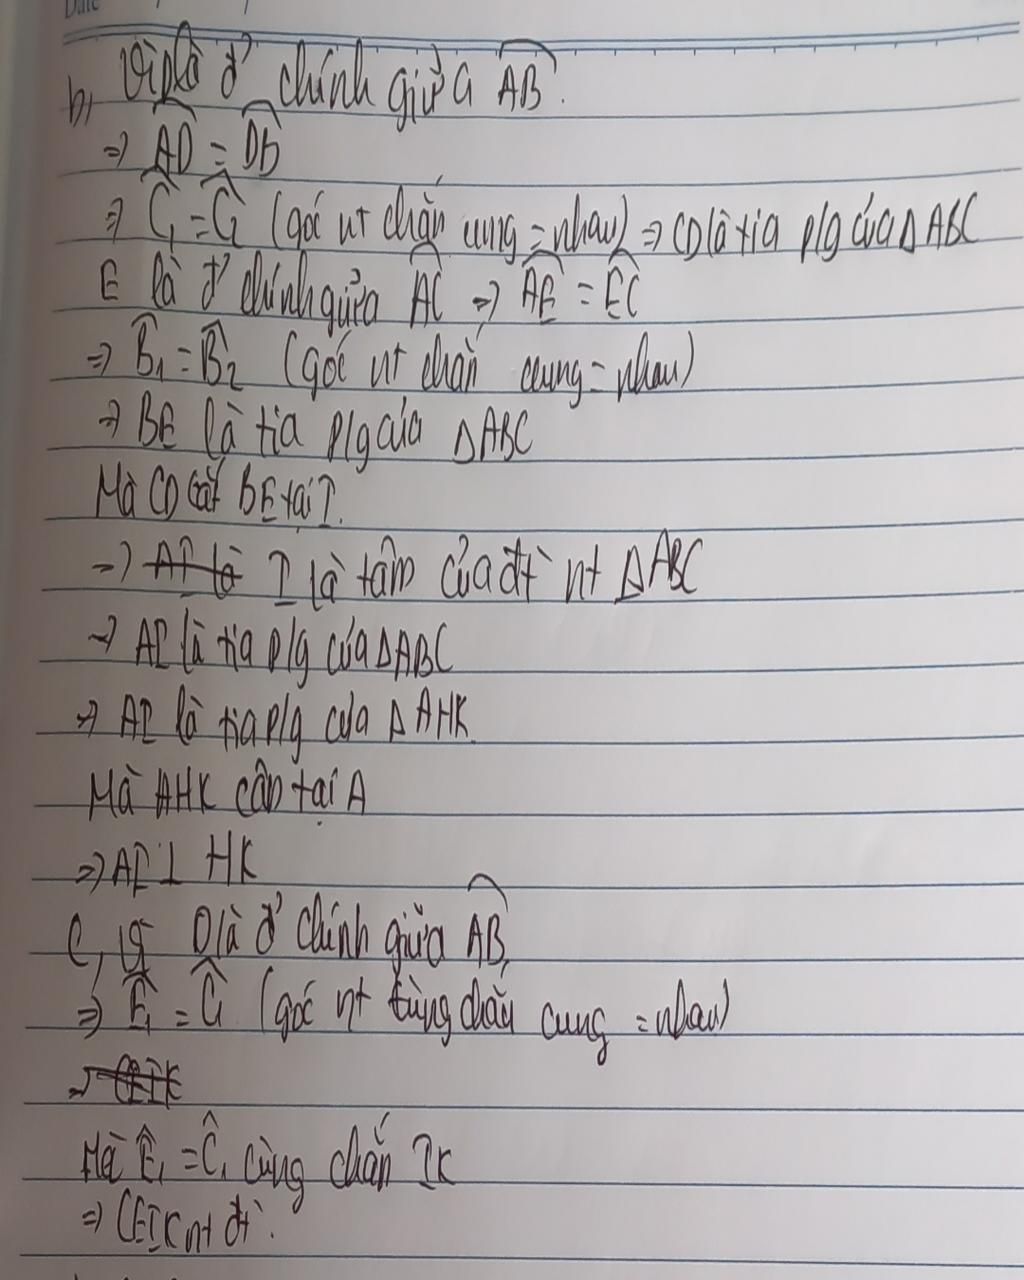 Date
b, Vì D là đ' chính giữa AB.
=> AD = DB
=> Ĉ₁ = Ĉ₂ (góc nt chắn cung = nhau) => CD là tia p/g của Δ ABC
E là đ' chính giữa AC => AE = EC
=> B̂₁ = B̂₂ (góc nt chắn cung = nhau)
=> BE là tia p/g của ΔABC
Mà CD cắt BE tại I.
=> AI là I là tâm của đt nt ΔABC
=> AI là tia p/g của ΔABC
=> AI là tia p/g của Δ AHK.
Mà AHK cân tại A
=> AI ⊥ HK
C, Vì D là đ' chính giữa AB,
=> Ê₁ = Ĉ₁ (góc nt cùng chắn cung = nhau)
=> CEIK
Mà Ê₁ = Ĉ₁ cùng chắn IK
=> CEIK nt đt.